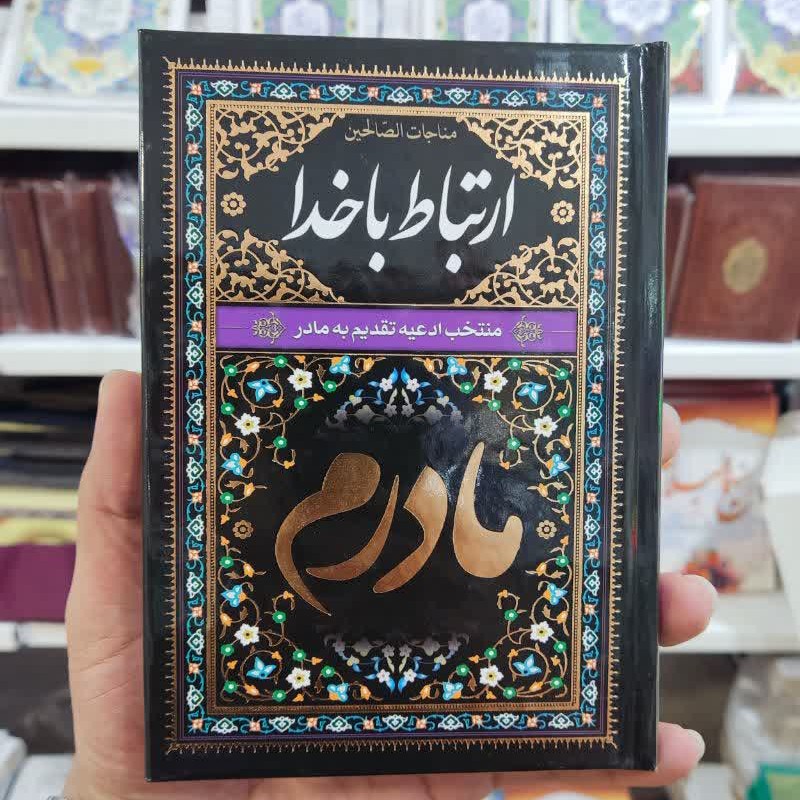 مناجات الصّالحین
ارتباط با خدا
منتخب ادعیه تقدیم به مادر
مادرم